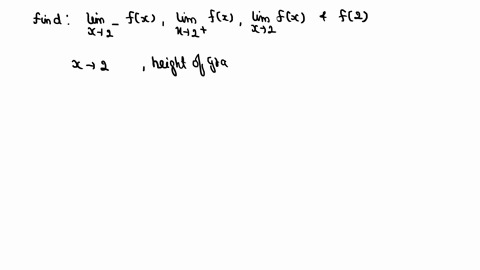 find : lim x→2⁻ f(x) , lim x→2⁺ f(x) , lim x→2 f(x) & f(2)
x→2 , height of gra